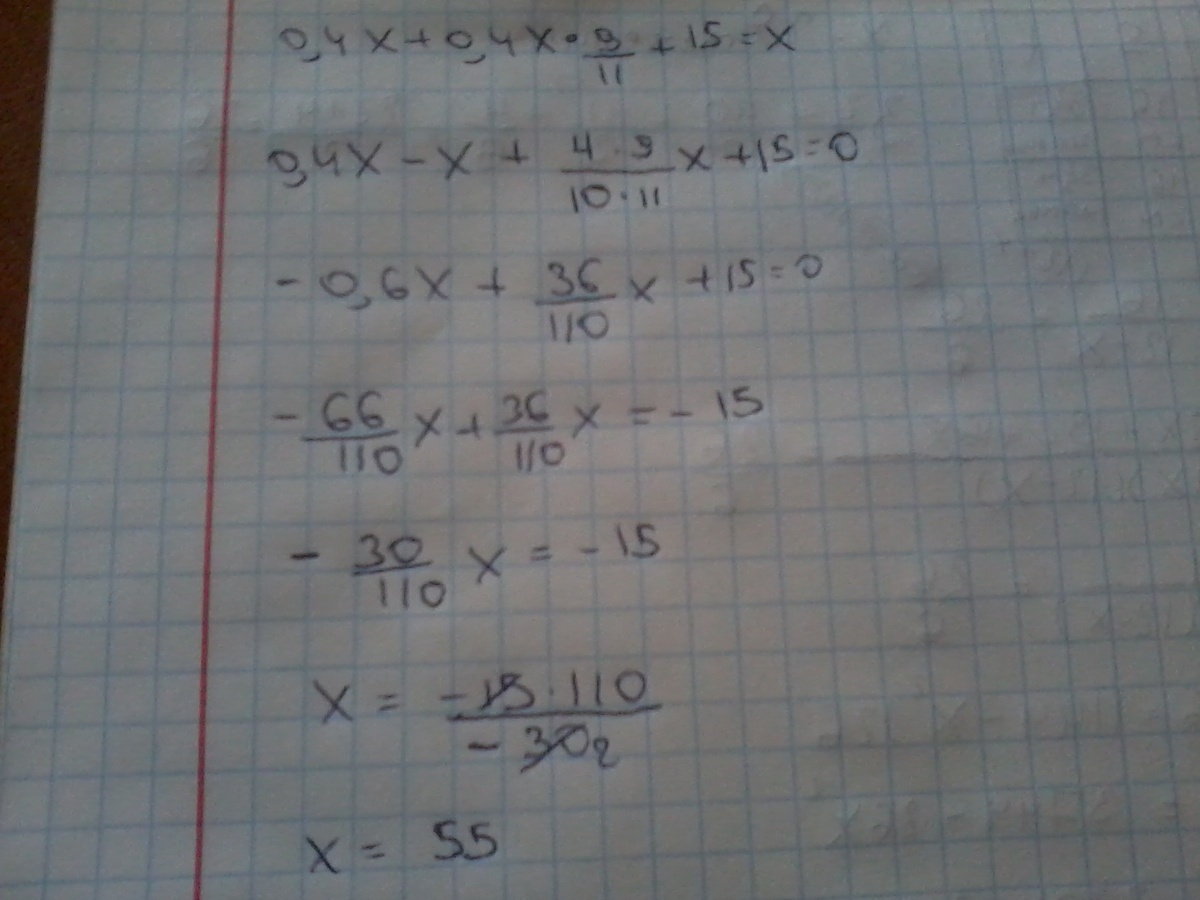 0,4x+0,4x·9/11+15=x
0,4x-x+(4·9)/(10·11)x+15=0
-0,6x+36/110x+15=0
-66/110x+36/110x=-15
-30/110x=-15
x=(-15·110)/(-30 2)
x=55